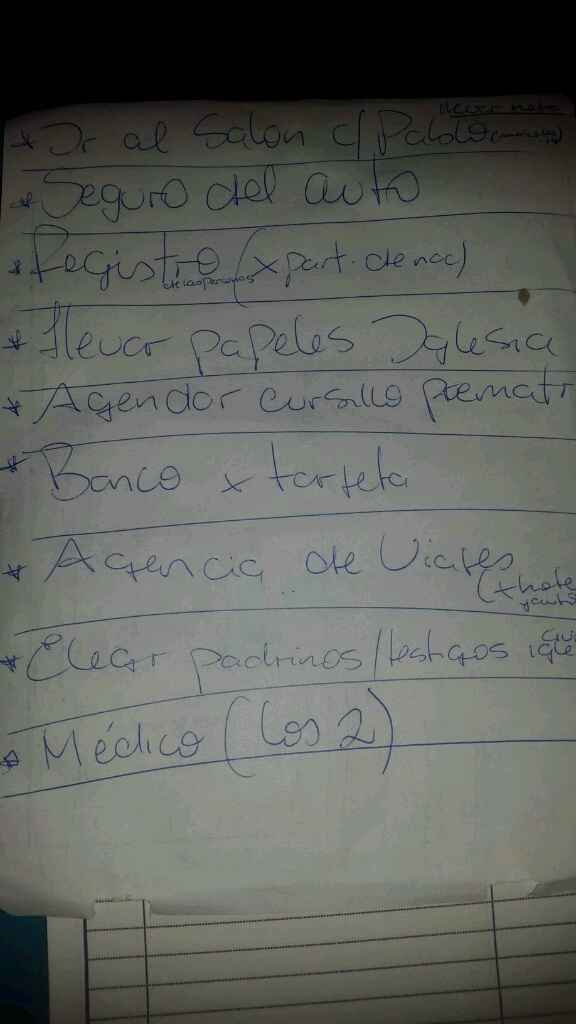 llevar nota
* Ir al Salon c/ Pablo
* Seguro del auto
* Registro (x part. de nac)
* llevar papeles Iglesia
* Agendar cursillo prematr
* Banco x tarjeta
* Agencia de Viajes
(x hote
* Elegir padrinos/testigos civil
igle
* Médico (los 2)